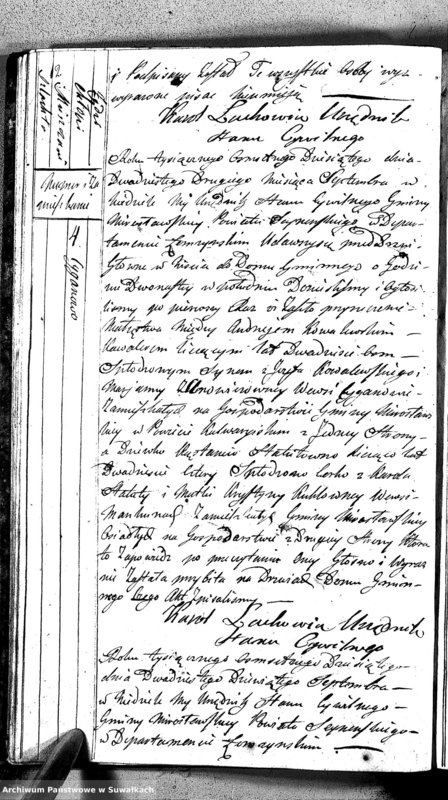 i Podpisany Został Te wszystkie Osoby wyż
wyrażone pisać nieumieją
Karol Zachowicz Urzędnik
Stanu Cywilnego
Roku tysiącznego Osmsetnego Dziesiątego dnia
Dwudziestego Drugiego Miesiąca Septembra w
Niedziele My Urzędnik Stanu Cywilnego Gminy
Mirosławskiey Powiatu Seyneńskiego w Depar-
tamencie Łomżyńskim Udawszysię przed Drzwi
Główne w Wejścia do Domu Gminnego o Godzi-
nie Dwunastey w południe Donieśliśmy i Ogłosi-
liśmy po pierwszy Raz iż Zaszło przyrzeczenie
Małżeństwa Między Andrzejem Kowalewskim
Kawalerem liczącym lat Dwadzieścia Osm
Spłodzonym Synem z Józefa Kowalewskiego i
Maryanny Wewsi Cyganowie
Zamieszkałych na Gospodarstwie Gminy Mirosław
skiey w Powiecie Kalwaryiskim z Jedney Strony
a Dziewką Konstancią liczącą lat
Dwadzieścia Cztery Spłodzoną Corką z Karola
i Matki Krystyny Wewsi
Zamieszkałych Gminy Mirosławskiey
Osiadłych na Gospodarstwie z Drugiey Strony Która
to Zapowiedz po przeczytaniu Oney Głośno i Wyraz
nie Została przybita na Drzwiach Domu Gmin-
nego Czego Akt Spisaliśmy
Karol Zachowicz Urzędnik
Stanu Cywilnego
Roku tysiącznego Osmsetnego Dziesiątego
dnia Dwudziestego Dziewiątego Septembra
w Niedziele My Urzędnik Stanu Cywilnego
Gminy Mirosławskiey Powiatu Seyneńskiego
w Departamencie Łomżyńskim
Numer i Za
mieszkanie
4 Cyganowo
Archiwum Państwowe w Suwałkach